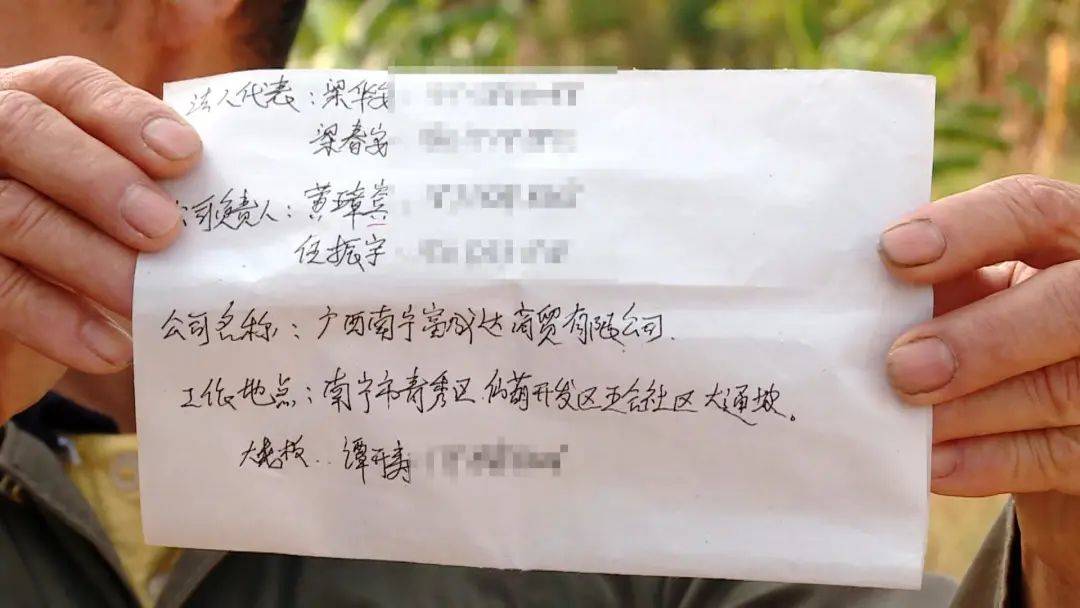 法人代表：梁华安
梁春安
公司负责人：黄璋宾
伍振宇
公司名称：广西南宁富成达商贸有限公司.
工作地点：南宁市青秀区仙葫开发区五合社区大通坡。
大老板：谭开寿